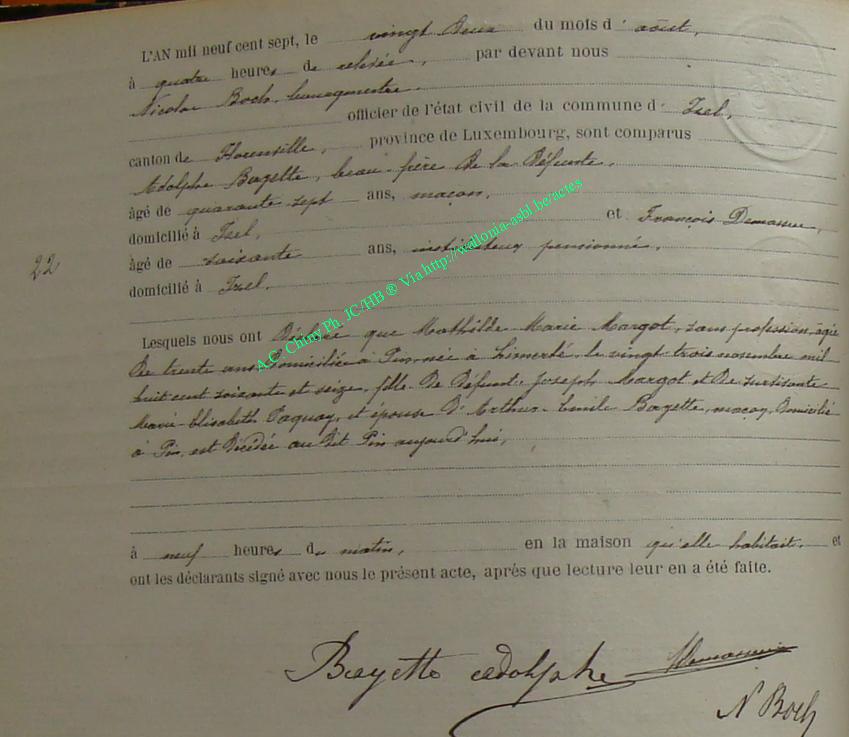 L'AN mil neuf cent sept, le vingt deux du mois d'août,
à quatre heures de relevée, par devant nous
Nicolas Boch, bourgmestre
officier de l'état civil de la commune d'Izel,
canton de Florenville, province de Luxembourg, sont comparus
Adolphe Bayette, beau-frère de la défunte,
âgé de quarante sept ans, maçon,
domicilié à Izel, et François Demasure,
âgé de soixante ans, instituteur pensionné,
domicilié à Izel.
22
Lesquels nous ont déclaré que Mathilde Marie Margot, sans profession, âgée
de trente ans, domiciliée à Pin, née à Limerlé, le vingt trois novembre mil
huit cent soixante et seize, fille de défunt Joseph Margot et de survivante
Marie-Elisabeth Paquay, et épouse d'Arthur-Emile Bayette, maçon, domicilié
à Pin, est décédée au dit Pin aujourd'hui,
à neuf heures du matin, en la maison qu'elle habitait, et
ont les déclarants signé avec nous le présent acte, après que lecture leur en a été faite.
Bayette adolphe
N Boch
A.C. Chiny Ph. JC/HB ® Via http://wallonia-asbl.be/actes